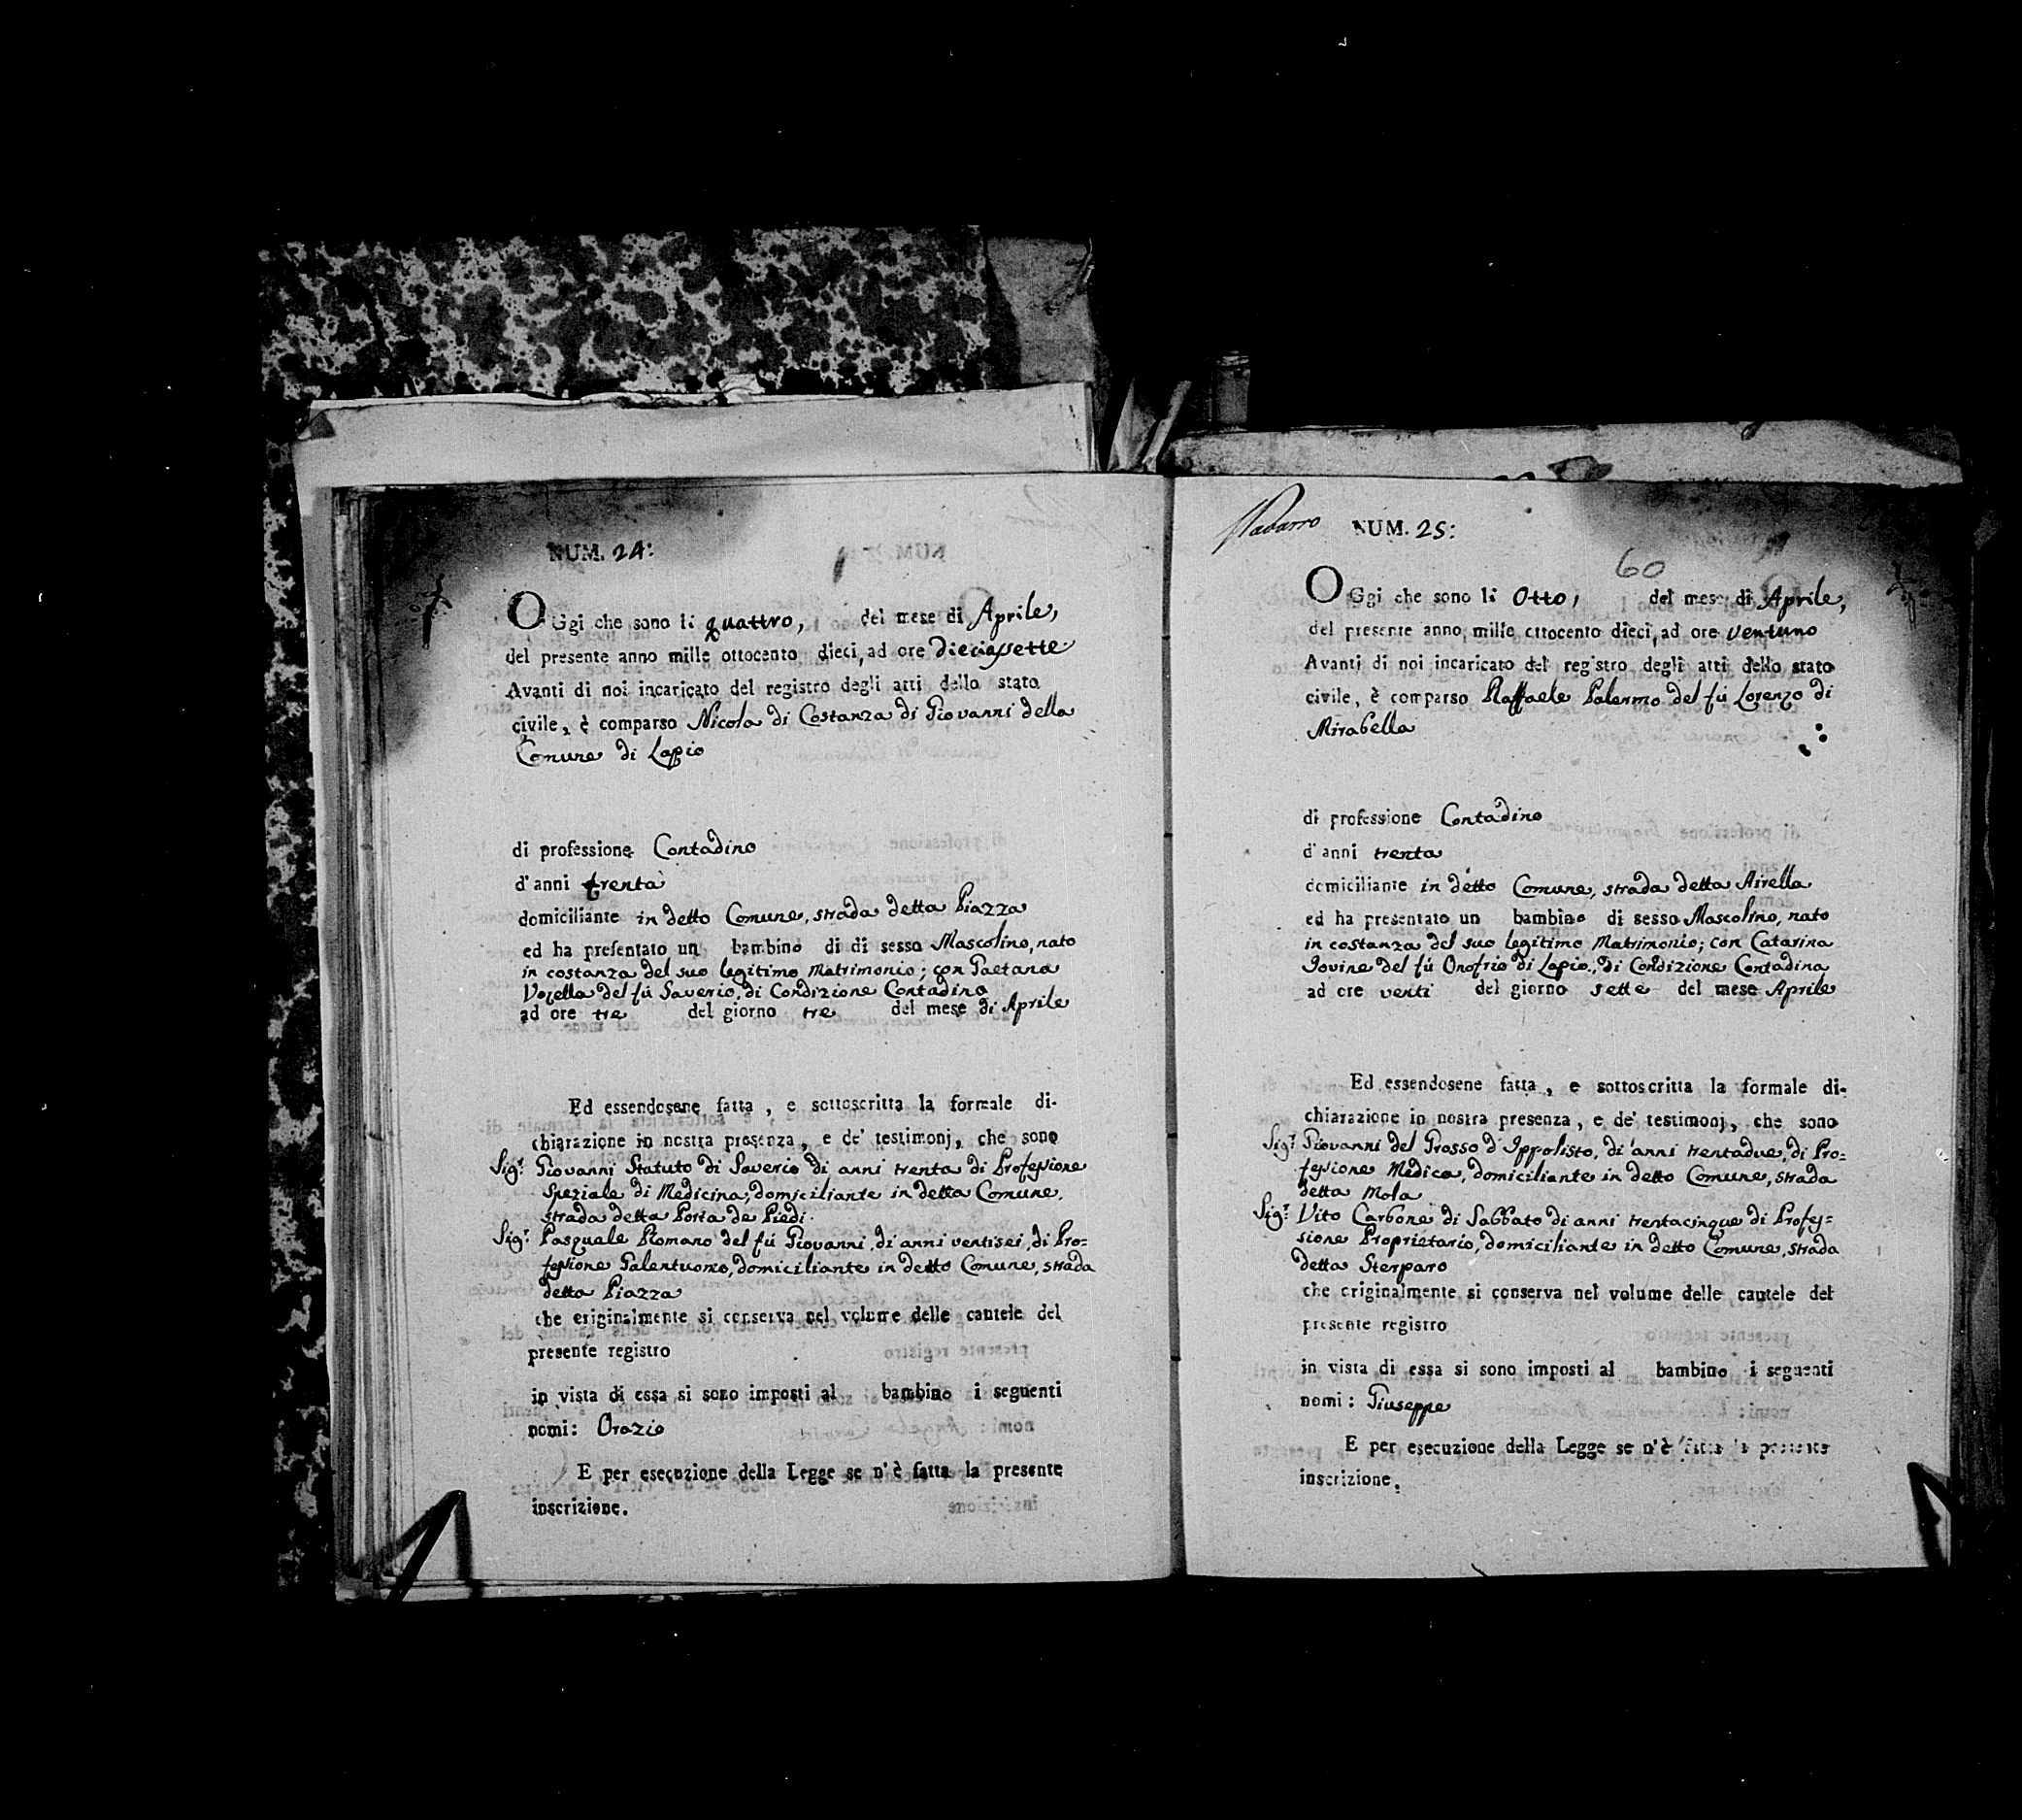 NUM. 24:
OGgi che sono li quattro, del mese di Aprile,
del presente anno mille ottocento dieci, ad ore dieciassette
Avanti di noi incaricato del registro degli atti dello stato
civile, è comparso Nicola di Costanza di Giovanni della
Comune di Lapio
di professione Contadino
d'anni trenta
domiciliante in detto Comune, strada detta Piazza
ed ha presentato un bambino di di sesso Mascolino, nato
in costanza del suo legitimo Matrimonio; con Gaetana
del fù Saverio, di Condizione Contadina
ad ore tre del giorno tre del mese di Aprile
Ed essendosene fatta, e sottoscritta la formale di-
chiarazione in nostra presenza, e de' testimonj, che sono
Sig.r Giovanni Statuto di Saverio di anni trenta di Professione
Speziale di Medicina, domiciliante in detta Comune,
strada detta Porta de Piedi.
Sig.r Pasquale Romano del fù Giovanni, di anni ventisei, di Pro=
fessione Galentuomo, domiciliante in detto Comune, strada
detta Piazza
che originalmente si conserva nel volume delle cautele del
presente registro
in vista di essa si sono imposti al bambino i seguenti
nomi: Orazio
E per esecuzione della Legge se n'è fatta la presente
inscrizione.
NUM. 25:
60
OGgi che sono li Otto, del mese di Aprile,
del presente anno mille ottocento dieci, ad ore ventuno
Avanti di noi incaricato del registro degli atti dello stato
civile, è comparso Raffaele Palermo del fù Lorenzo di
Mirabella
di professione Contadino
d'anni trenta
domiciliante in detto Comune, strada detta Airella
ed ha presentato un bambino di sesso Mascolino, nato
in costanza del suo legitimo Matrimonio; con Catarina
Iovine del fù Onofrio di Lapio, di Condizione Contadina
ad ore venti del giorno sette del mese Aprile
Ed essendosene fatta, e sottoscritta la formale di-
chiarazione in nostra presenza, e de' testimonj, che sono
Sig.r Giovanni del Grosso d'Ippolisto, di anni trentadue, di Pro=
fessione Medico, domiciliante in detto Comune, strada
detta Mola
Sig.r Vito Carbone di Sabbato di anni trentacinque di Profes=
sione Proprietario, domiciliante in detto Comune, strada
detta Sterparo
che originalmente si conserva nel volume delle cautele del
presente registro
in vista di essa si sono imposti al bambino i seguenti
nomi: Giuseppe
E per esecuzione della Legge se n'è fatta la presente
inscrizione.